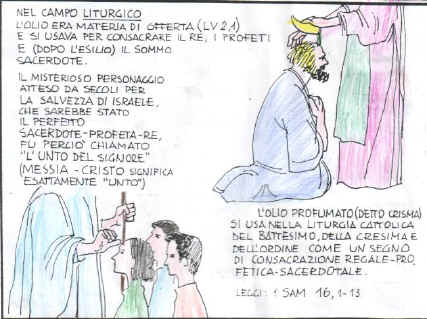 NEL CAMPO LITURGICO
L'OLIO ERA MATERIA DI OFFERTA (LV 2,1)
E SI USAVA PER CONSACRARE IL RE, I PROFETI
E (DOPO L'ESILIO) IL SOMMO
SACERDOTE.
IL MISTERIOSO PERSONAGGIO
ATTESO DA SECOLI PER
LA SALVEZZA DI ISRAELE,
CHE SAREBBE STATO
IL PERFETTO
SACERDOTE-PROFETA-RE,
FU PERCIÒ CHIAMATO
"L'UNTO DEL SIGNORE"
(MESSIA - CRISTO SIGNIFICA
ESATTAMENTE "UNTO")
L'OLIO PROFUMATO (DETTO CRISMA)
SI USA NELLA LITURGIA CATTOLICA
DEL BATTESIMO, DELLA CRESIMA E
DELL'ORDINE COME UN SEGNO
DI CONSACRAZIONE REGALE-PRO
FETICA-SACERDOTALE.
LEGGI: 1 SAM 16, 1-13